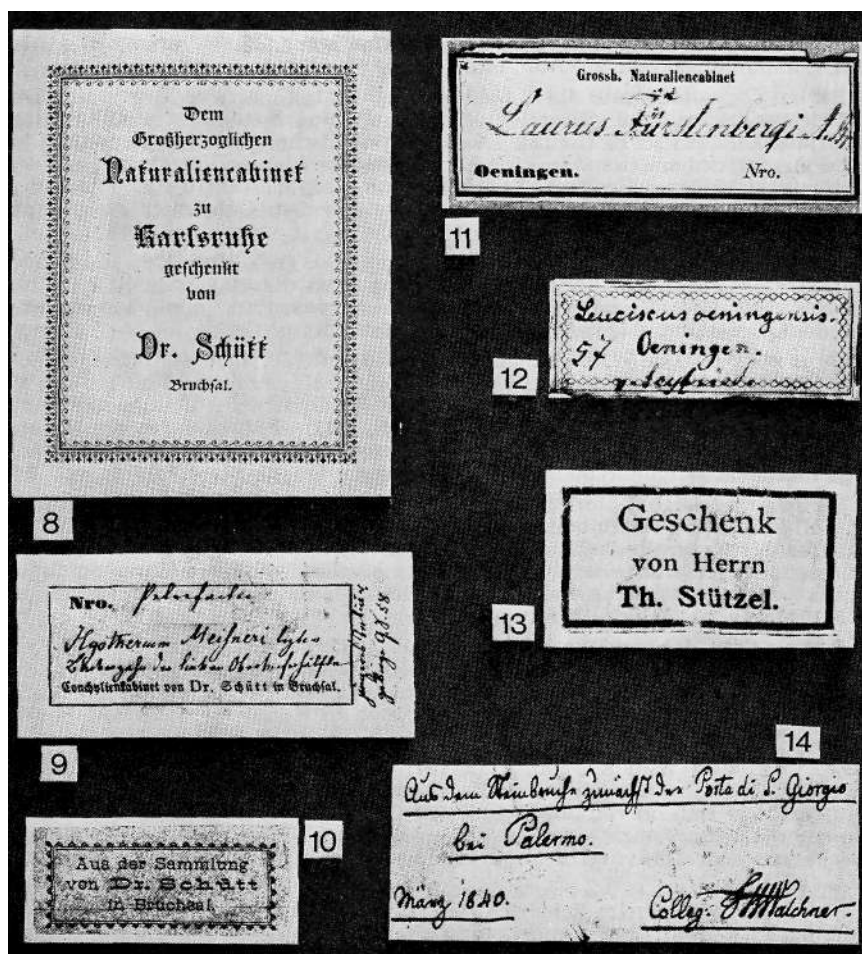 Dem
Großherzoglichen
Naturaliencabinet
zu
Karlsruhe
geschenkt
von
Dr. Schütt
Bruchsal.
8
Nro.
Hyotherium Meissneri
Conchylienkabinet von Dr. Schütt in Bruchsal.
9
Aus der Sammlung
von Dr. Schütt
in Bruchsal
10
Grossh. Naturaliencabinet
Laurus Fürstenbergi A. Br.
Oeningen. Nro.
11
Leuciscus oeningensis.
57 Oeningen.
v. Seyfried
12
Geschenk
von Herrn
Th. Stützel.
13
14
Aus dem Steinbruche zunächst der Porta di S. Giorgio
bei Palermo.
März 1840. Colleg. Walchner.